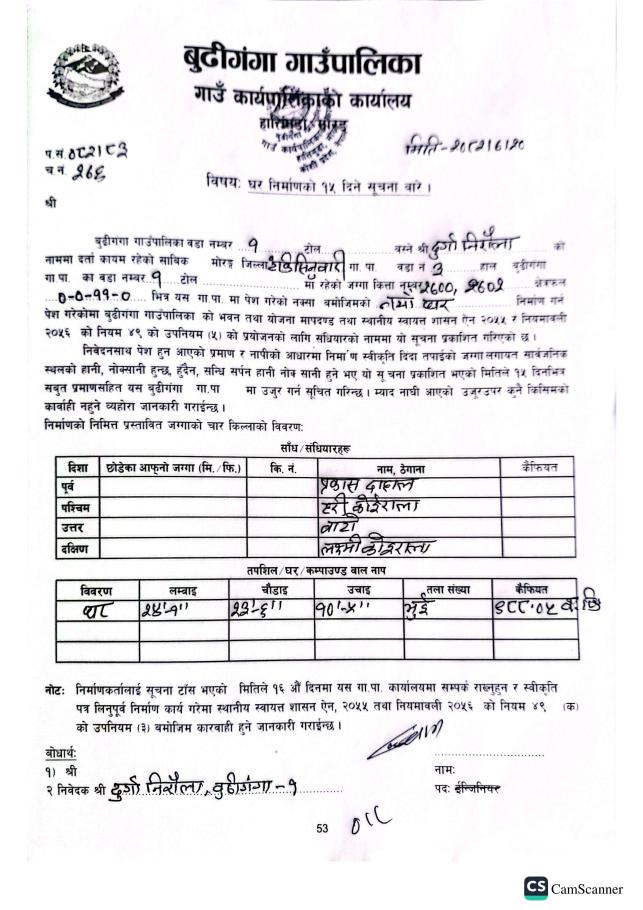 बुढीगंगा गाउँपालिका
गाउँ कार्यपालिकाको कार्यालय
हात्तिमुडा, मोरङ
प.सं.०८२।८३
मिति-२०८२।६।२०
च नं. २७६
विषयः घर निर्माणको १५ दिने सूचना बारे ।
श्री
बुढीगंगा गाउँपालिका वडा नम्बर ..१ टोल ............ बस्ने श्री दुर्गा निरौला को
नाममा दर्ता कायम रहेको साविक मोरङ्ग जिल्ला गा.पा. वडा नं 3 हाल बुढीगंगा
गा.पा. का वडा नम्बर १ टोल ............ मा रहेको जग्गा कित्ता नम्बर 2600, 2602 क्षेत्रफल
0-0-११-0 भित्र यस गा.पा. मा पेश गरेको नक्सा बमोजिमको घर निर्माण गर्न
पेश गरेकोमा बुढीगंगा गाउँपालिका को भवन तथा योजना मापदण्ड तथा स्थानीय स्वायत्त शासन ऐन २०५५ र नियमावली
२०५६ को नियम ४९ को उपनियम (५) को प्रयोजनको लागि संधियारको नाममा यो सूचना प्रकाशित गरिएको छ ।
निवेदनसाथ पेश हुन आएको प्रमाण र नापीको आधारमा निर्माण स्वीकृति दिदा तपाईको जग्गा लगायत सार्वजनिक
स्थलको हानी, नोक्सानी हुन्छ, हुँदैन, सन्धि सर्पन हानी नोक सानी हुने भए यो सूचना प्रकाशित भएको मितिले १५ दिनभित्र
सबुत प्रमाणसहित यस बुढीगंगा गा.पा मा उजुर गर्न सूचित गरिन्छ । म्याद नाघी आएको उजूरउपर कुनै किसिमको
कार्वाही नहुने व्यहोरा जानकारी गराईन्छ ।
निर्माणको निमित्त प्रस्तावित जग्गाको चार किल्लाको विवरण:
साँध/संधियारहरू
दिशा छोडेका आफ्नो जग्गा (मि. /फि.) कि. नं. नाम, ठेगाना कैफियत
पूर्व प्रकास दाहाल
पश्चिम हरी कोईराला
उत्तर बाटो
दक्षिण लक्ष्मी कोइराला
तपशिल/घर/कम्पाउण्ड वाल नाप
विवरण लम्वाइ चौडाइ उचाइ तला संख्या कैफियत
घर २५'-१" २३'-६" १०'-५" भुई ९८८.०५ व. फि
नोटः निर्माणकर्तालाई सूचना टाँस भएको मितिले १६ औं दिनमा यस गा.पा. कार्यालयमा सम्पर्क राख्नुहुन र स्वीकृति
पत्र लिनुपूर्व निर्माण कार्य गरेमा स्थानीय स्वायत्त शासन ऐन, २०५५ तथा नियमावली २०५६ को नियम ४९ (क)
को उपनियम (३) बमोजिम कारवाही हुने जानकारी गराईन्छ ।
बोधार्थ:
१) श्री
नाम:
२ निवेदक श्री दुर्गा निरौला, बुढीगंगा-१
पदः ईन्जिनियर
53
CS CamScanner